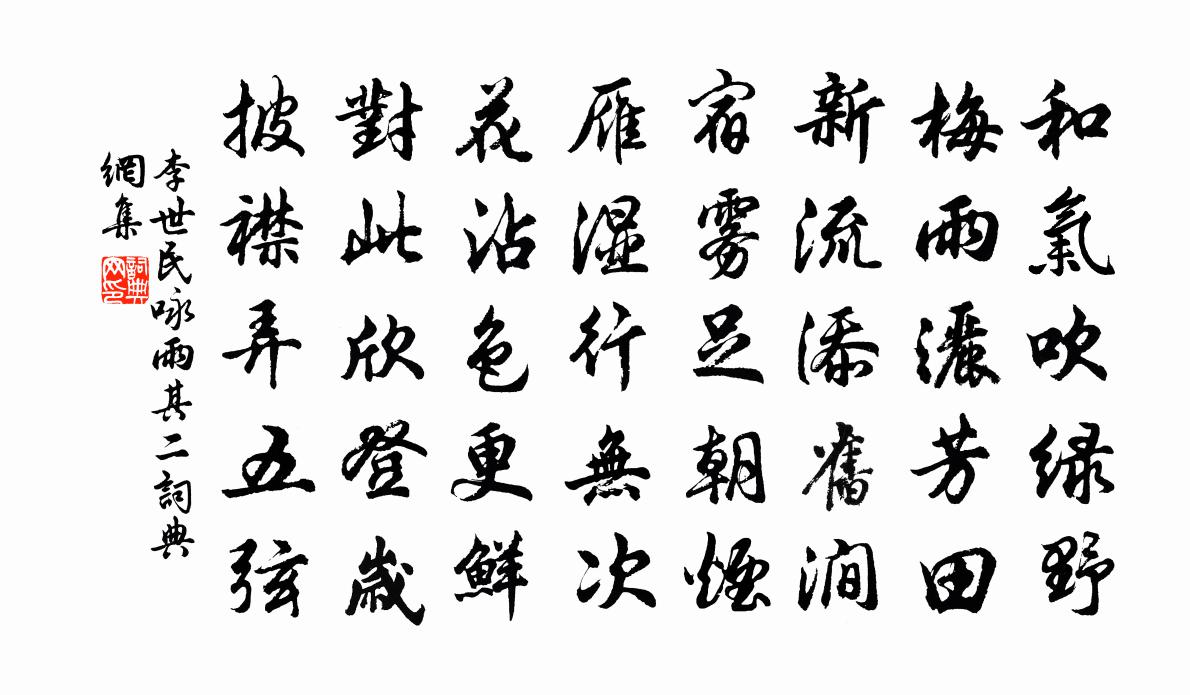 和氣吹绿野
梅雨灑芳田
新流添舊澗
宿雾足朝煙
雁湿行無次
花沾色更鮮
對此欣登歲
披襟弄五弦
李世民咏雨其二詞典
網集
詞典
网印